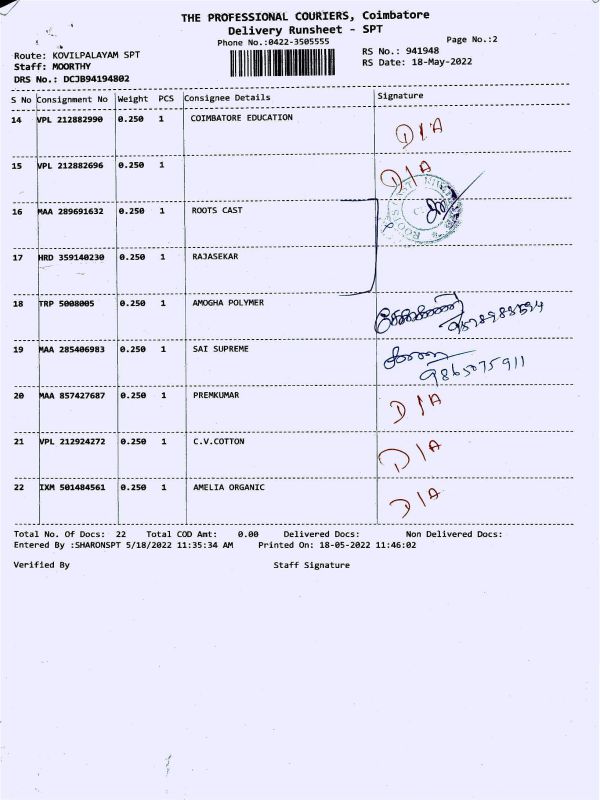 THE PROFESSIONAL COURIERS, Coimbatore
Delivery Runsheet - SPT
Phone No.:0422-3505555
Page No.:2
Route: KOVILPALAYAM SPT
RS No.: 941948
Staff: MOORTHY
RS Date: 18-May-2022
DRS No.: DCJB94194802
S No Consignment No Weight PCS Consignee Details Signature
14 VPL 212882990 0.250 1 COIMBATORE EDUCATION D/A
15 VPL 212882696 0.250 1 D/A
16 MAA 289691632 0.250 1 ROOTS CAST
17 HRD 359140230 0.250 1 RAJASEKAR
18 TRP 5008005 0.250 1 AMOGHA POLYMER
19 MAA 285406983 0.250 1 SAI SUPREME
9865075911
20 MAA 857427687 0.250 1 PREMKUMAR D/A
21 VPL 212924272 0.250 1 C.V.COTTON D/A
22 IXM 501484561 0.250 1 AMELIA ORGANIC D/A
Total No. Of Docs: 22 Total COD Amt: 0.00 Delivered Docs: Non Delivered Docs:
Entered By :SHARONSPT 5/18/2022 11:35:34 AM Printed On: 18-05-2022 11:46:02
Verified By Staff Signature